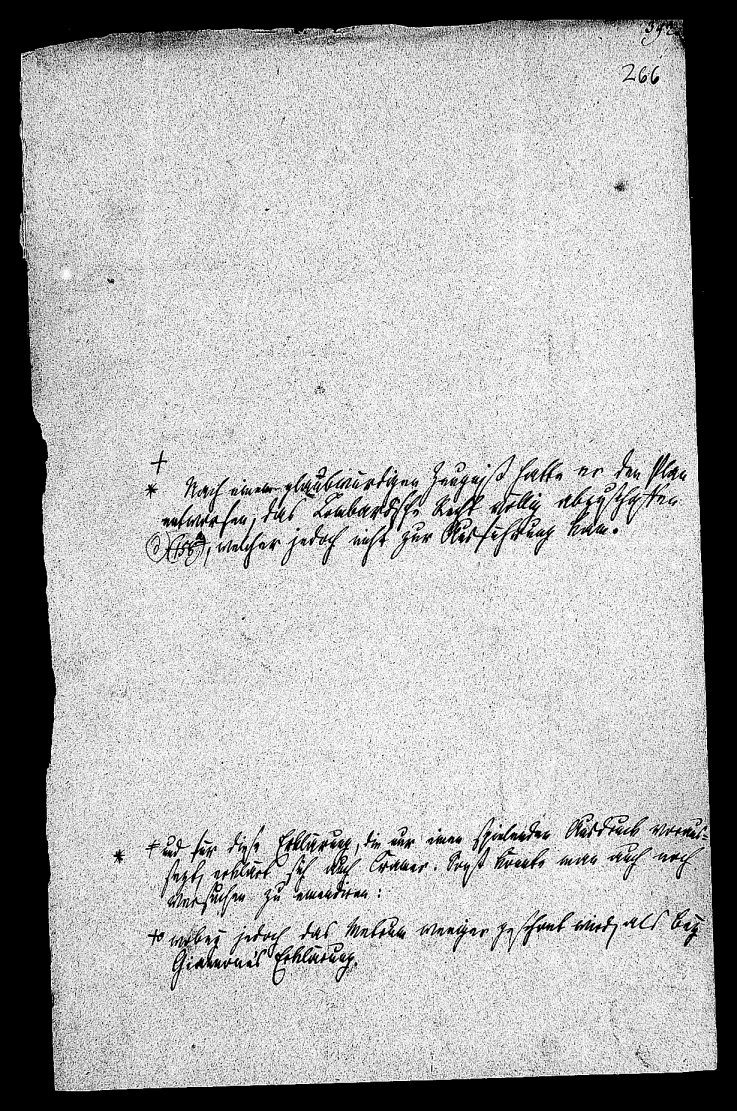 266
+
* Nach einem glaubwürdigen Zeugniß hatte er den Plan
entworfen, das Lombardische Recht völlig abzuschaffen
158), welcher jedoch nicht zur Ausführung kam.
* + und für diese Erklärung, die nur einen spielenden Ausdruck voraus-
setzt, erklärt sich auch Cramer. Sonst könnte man auch noch
versuchen zu emendiren:
+o wobey jedoch das Metrum weniger geschont wird, als bey
Giannone's Erklärung.